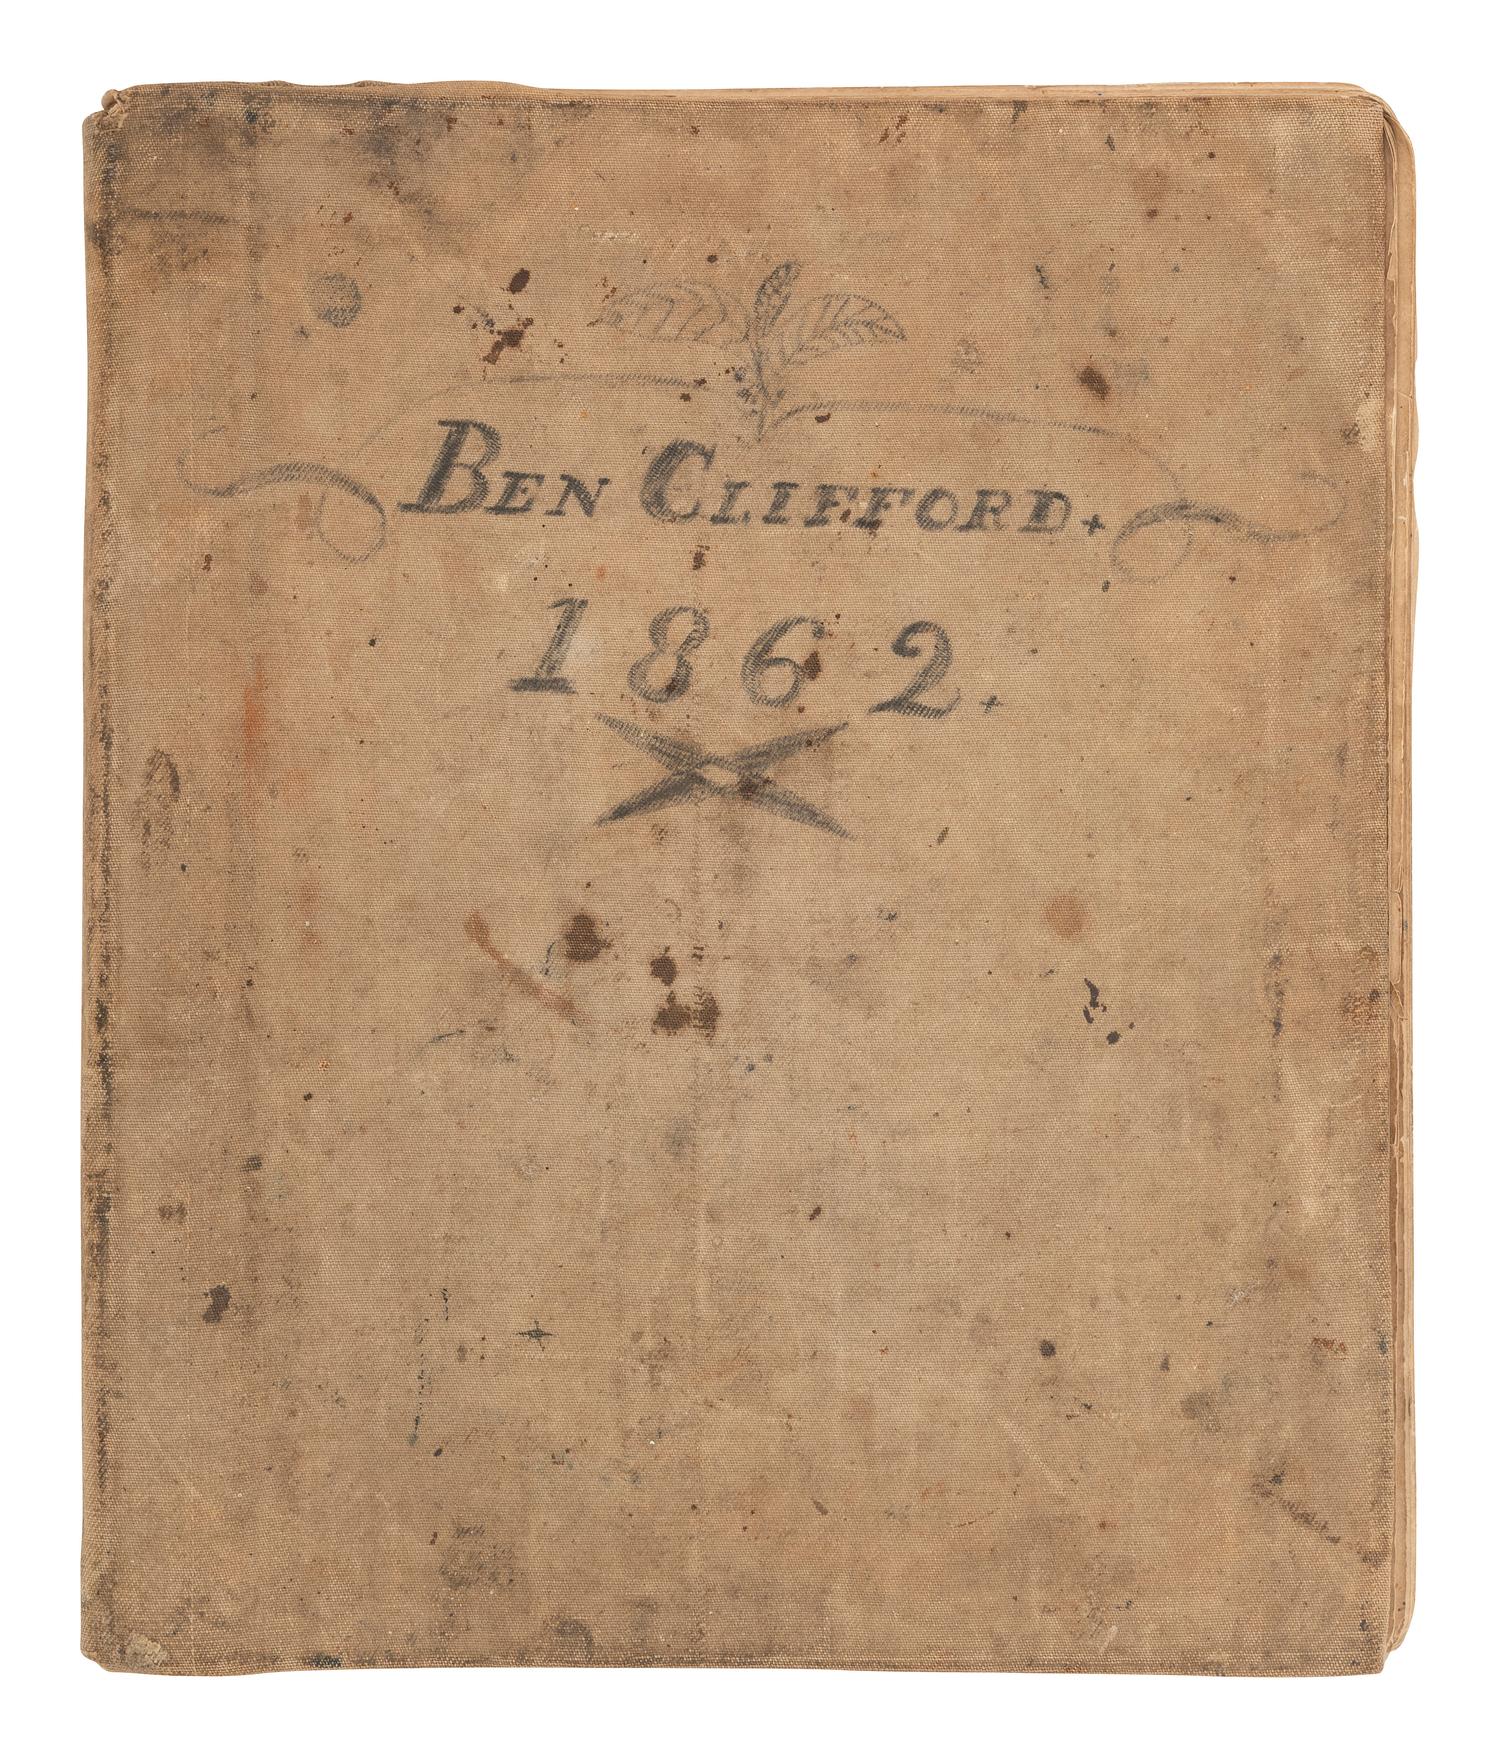 BEN CLIFFORD.
1862.